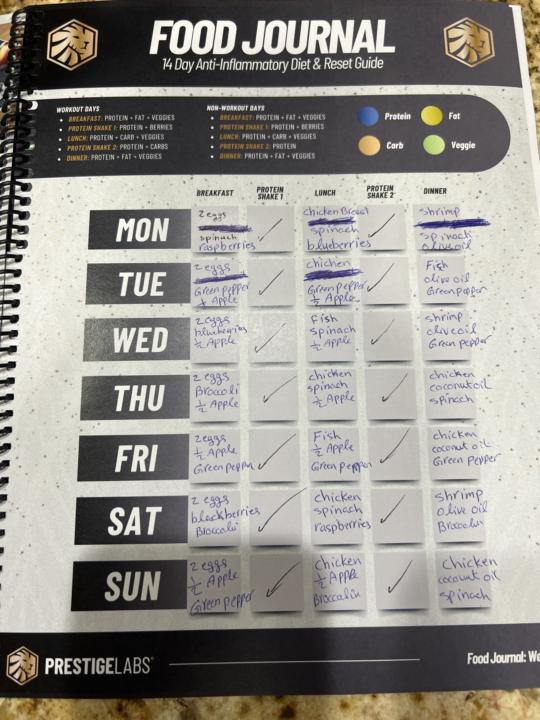 FOOD JOURNAL
14 Day Anti-Inflammatory Diet & Reset Guide
WORKOUT DAYS
• BREAKFAST: PROTEIN + FAT + VEGGIES
• PROTEIN SHAKE 1: PROTEIN + BERRIES
• LUNCH: PROTEIN + CARB + VEGGIES
• PROTEIN SHAKE 2: PROTEIN + CARBS
• DINNER: PROTEIN + FAT + VEGGIES
NON-WORKOUT DAYS
• BREAKFAST: PROTEIN + FAT + VEGGIES
• PROTEIN SHAKE 1: PROTEIN + BERRIES
• LUNCH: PROTEIN + CARB + VEGGIES
• PROTEIN SHAKE 2: PROTEIN
• DINNER: PROTEIN + FAT + VEGGIES
Protein
Fat
Carb
Veggie
BREAKFAST
PROTEIN SHAKE 1
LUNCH
PROTEIN SHAKE 2
DINNER
MON
2 eggs
spinach
raspberries
✓
chicken Breast
spinach
blueberries
✓
shrimp
spinach
olive oil
TUE
2 eggs
Green pepper
Apple
✓
chicken
Green pepper
½ Apple
✓
Fish
olive oil
Green pepper
WED
2 eggs
blueberries
½ Apple
✓
Fish
spinach
½ Apple
✓
shrimp
olive oil
Green pepper
THU
2 eggs
Broccoli
½ Apple
✓
chicken
spinach
½ Apple
✓
chicken
coconut oil
spinach
FRI
2 eggs
½ Apple
Green pepper
✓
Fish
½ Apple
Green pepper
✓
chicken
coconut oil
Green pepper
SAT
2 eggs
blackberries
Broccolin
✓
chicken
spinach
raspberries
✓
shrimp
olive oil
Broccolin
SUN
2 eggs
½ Apple
Green pepper
✓
chicken
½ Apple
Broccolin
✓
chicken
coconut oil
spinach
PRESTIGE LABS®
Food Journal: We